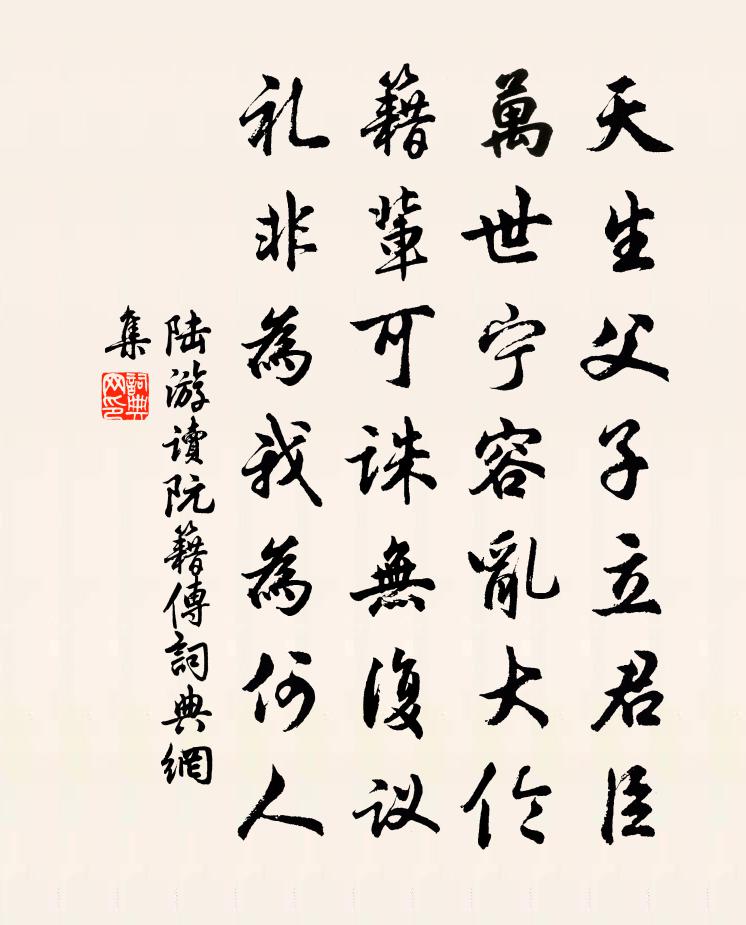 天生父子立君臣
萬世宁容亂大伦
籍輩可誅無復议
礼非為我為何人
陆游讀阮籍傳詞典網
集
詞典
网印